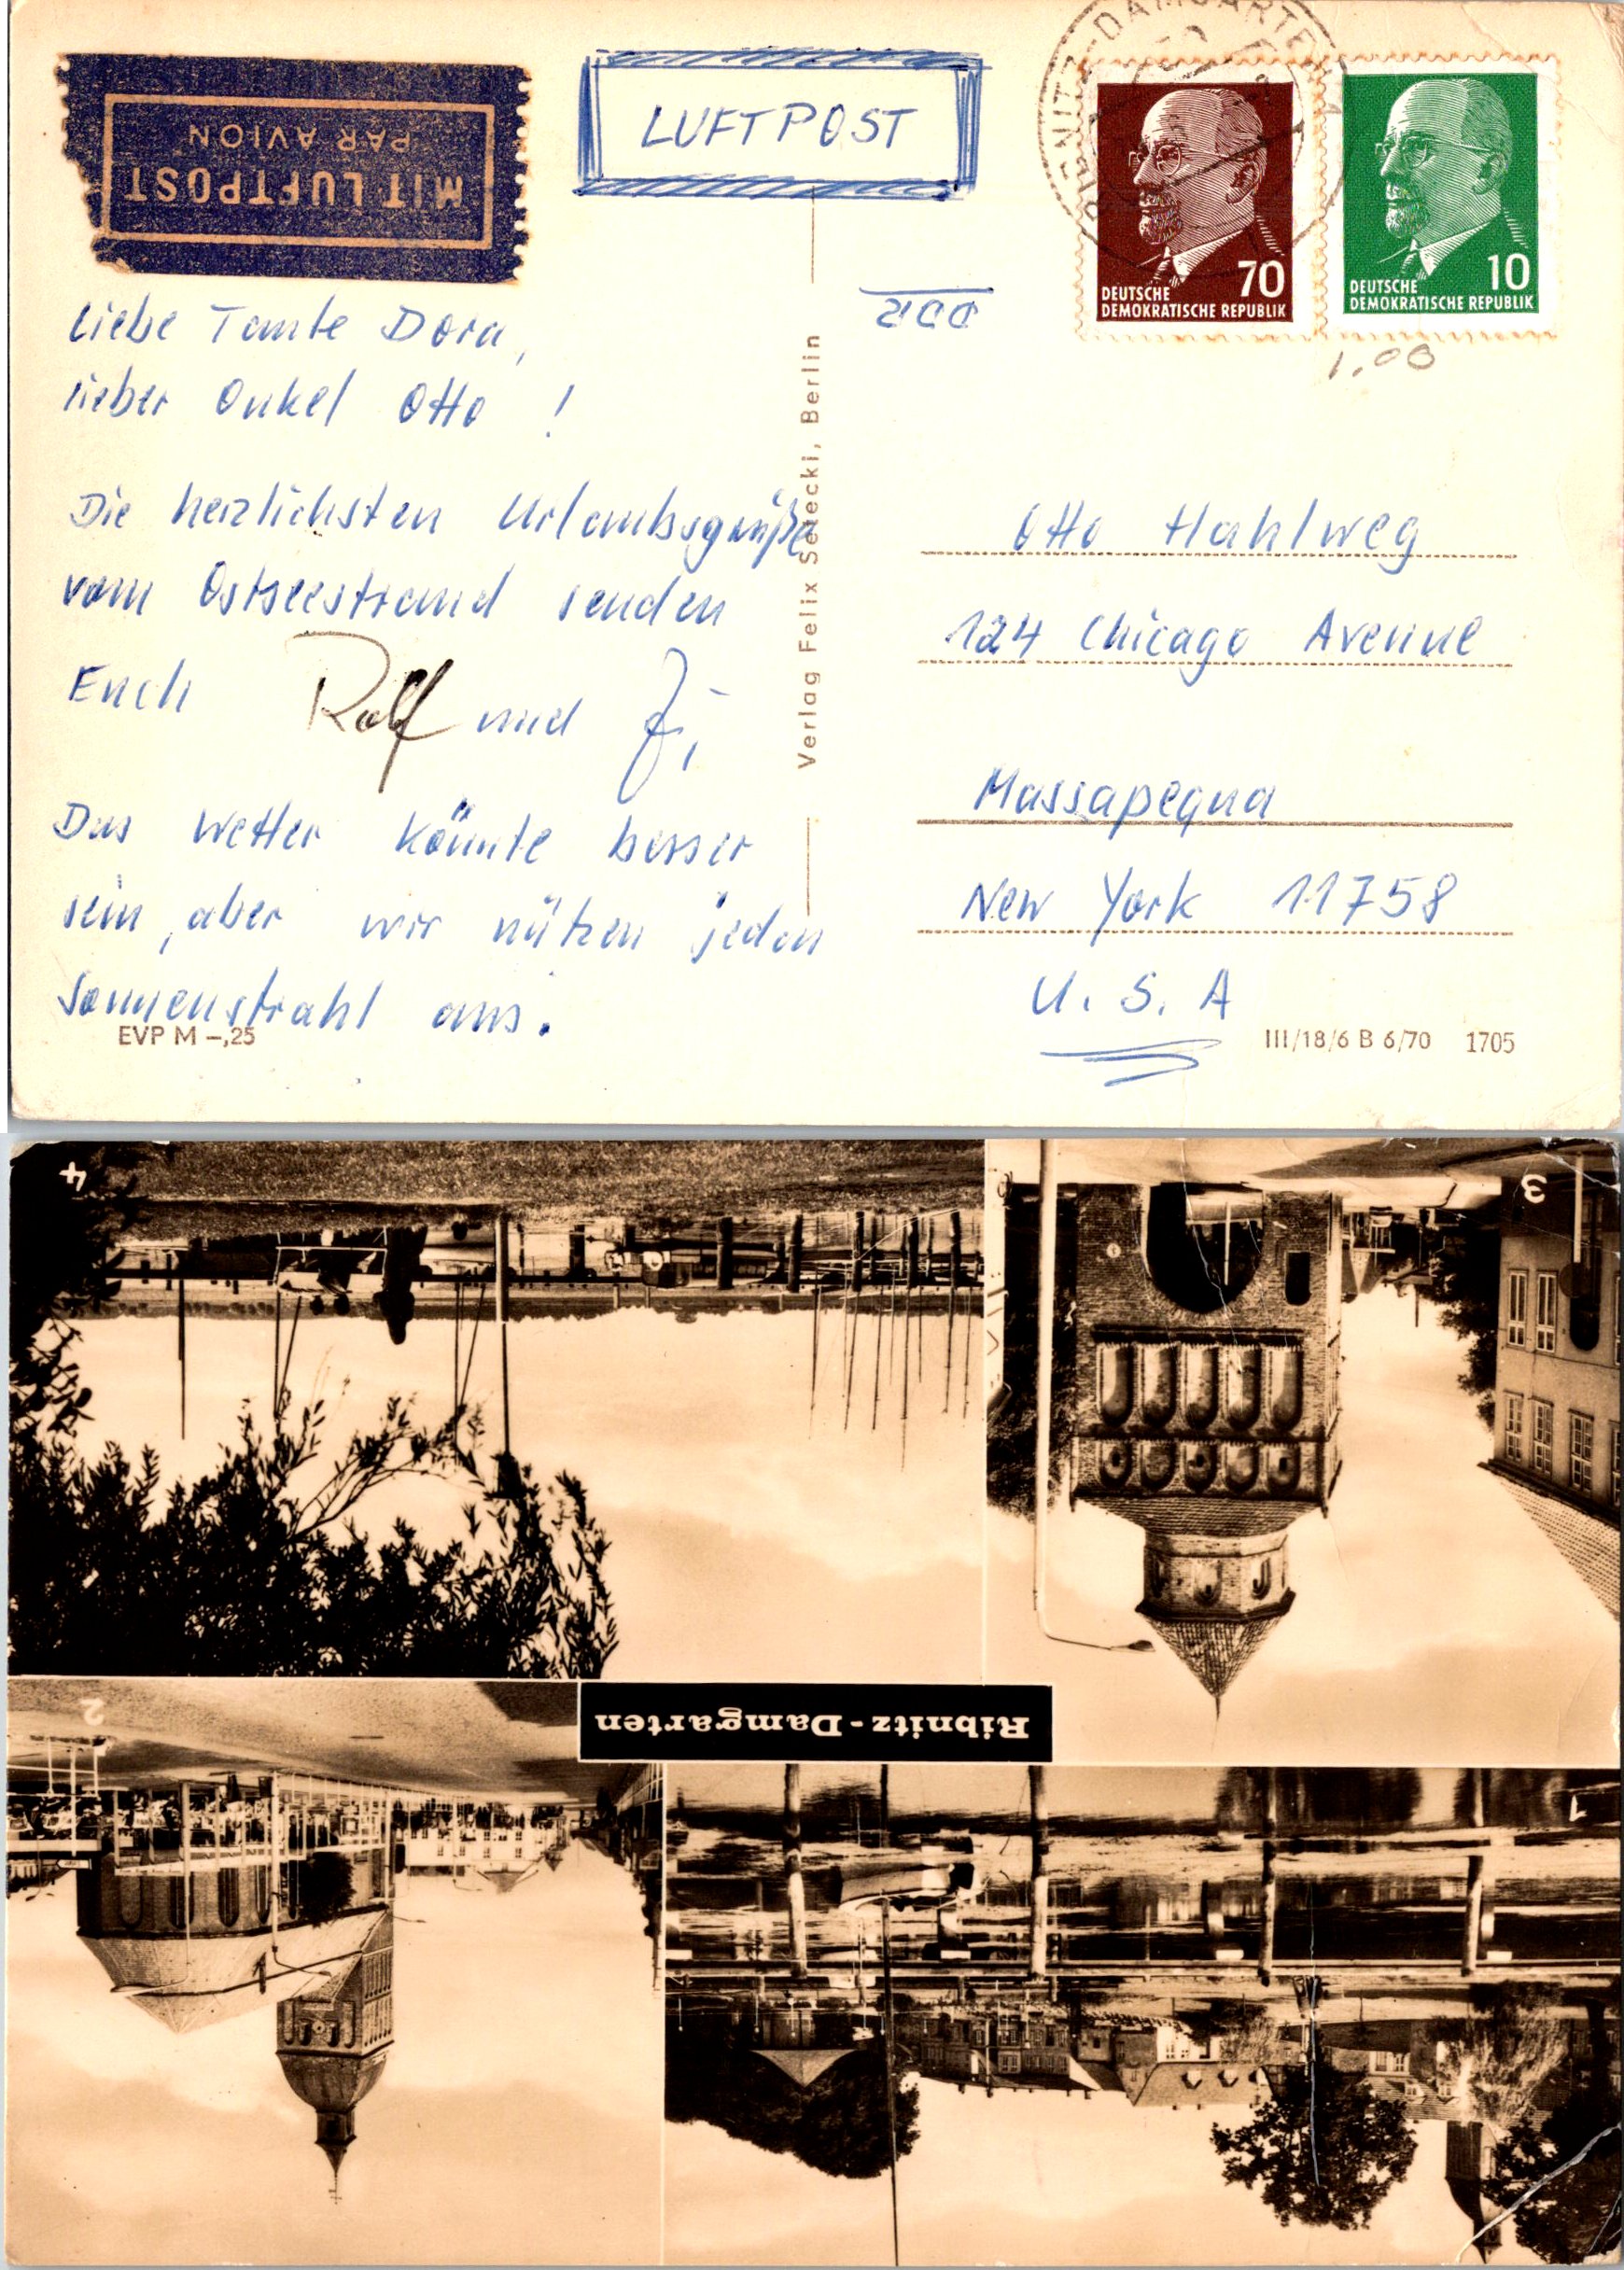 MIT LUFTPOST
PAR AVION
LUFTPOST
70
DEUTSCHE
DEMOKRATISCHE REPUBLIK
10
DEUTSCHE
DEMOKRATISCHE REPUBLIK
1,00
Liebe Tante Dora,
lieber Onkel Otto !
Die herzlichsten Urlaubsgrüße
vom Ostseestrand senden
Euch Rolf und
Das Wetter könnte besser
sein, aber wir nützen jeden
Sonnenstrahl aus.
EVP M –,25
Verlag Felix Setecki, Berlin
Otto Hahlweg
124 Chicago Avenue
Massapequa
New York 11758
U. S. A
III/18/6 B 6/70 1705
4
3
Ribnitz-Damgarten
2
1